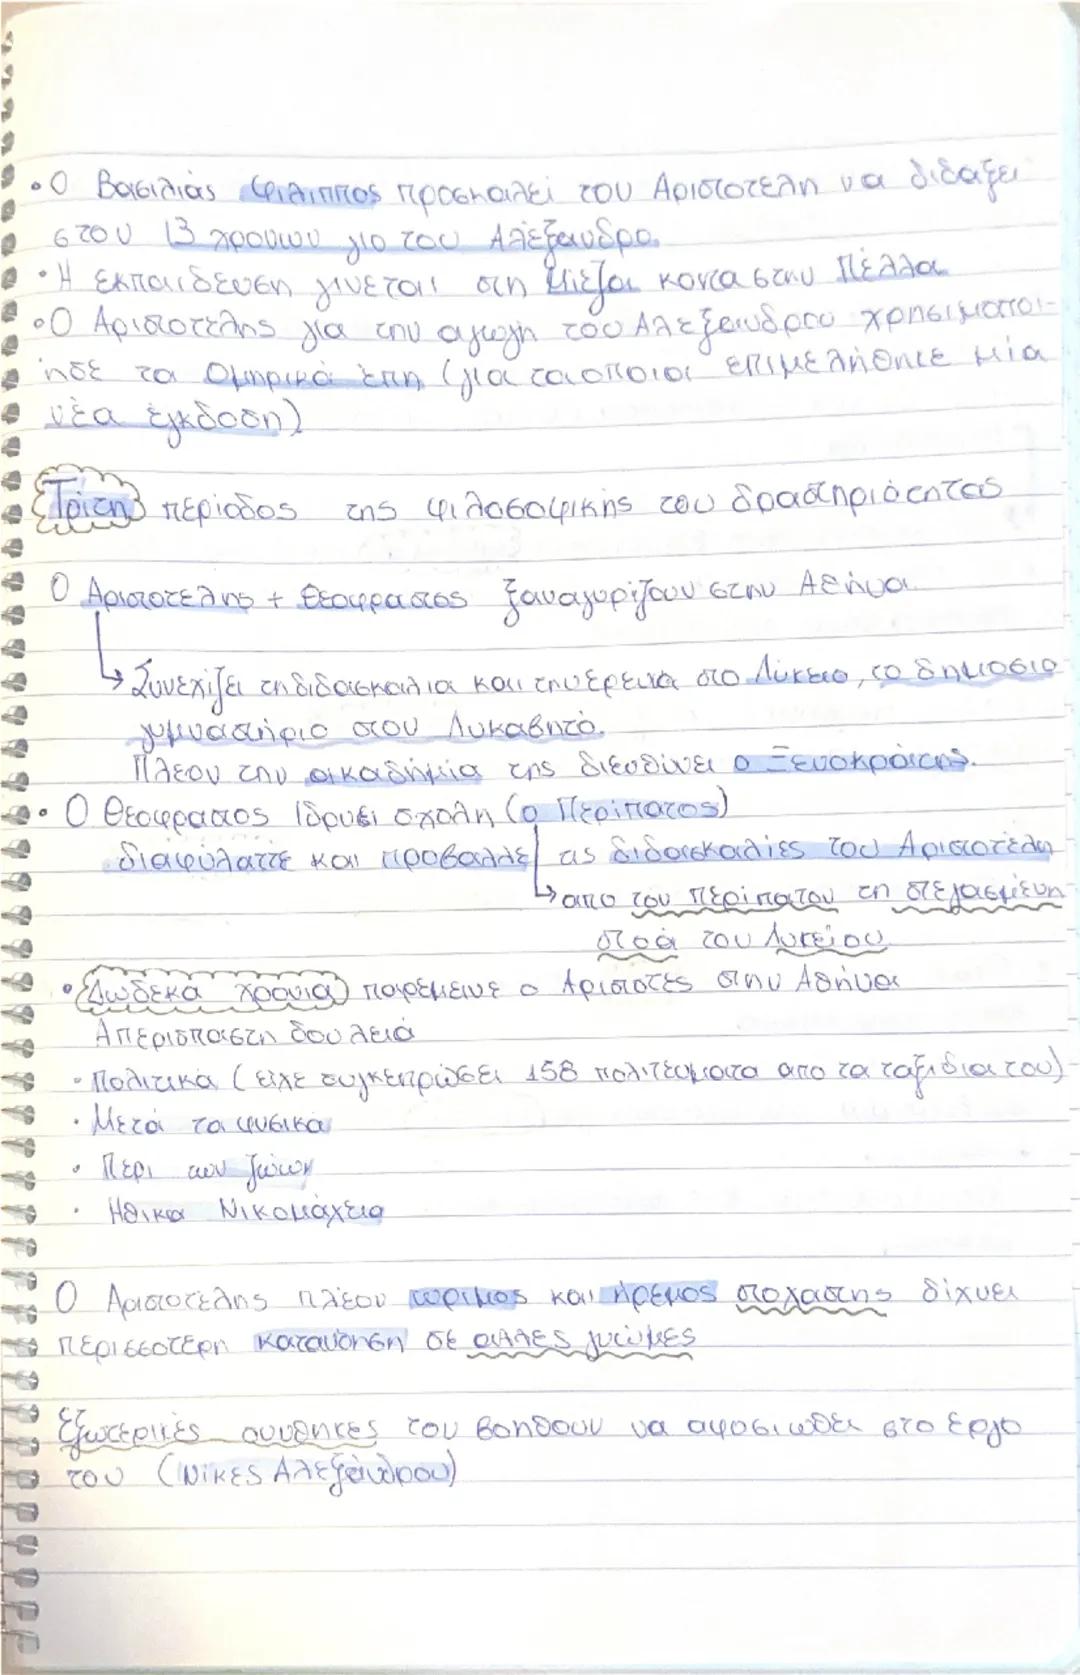 • Ο Βασιλιάς Φίλιππος προσκαλεί του Αριστοτέλη να διδάξει
στον 13 χρονων γιο του Αλέξανδρο.
• Η εκπαιδευση γινεται στη Μιεζα κοντα στην Πέλλα
• Ο Αριστοτέλης για την αγωγη του Αλεξανδρου χρησιμοποι-
ησε τα Ομηρικά έπη (για τα οποια επιμελήθηκε μία
νέα έγκδοση)
Τρίτη περίοδος της φιλοσοφικής του δραστηριότητας
Ο Αριστοτελης + Θεοφραστος ξαναγυρίζουν στην Αθήνα
↳ Συνεχίζει τη διδασκαλια και την έρευνα στο Λύκειο, το δημοσιο
γυμναστήριο στον Λυκαβητό.
Πλεον την ακαδημία της διευθύνει ο Ξενοκράτης.
• Ο Θεοφραστος Ιδρυει σχολη (ο Περίπατος)
διαφύλαττε και προβαλλε τις διδασκαλίες του Αριστοτέλη
↳ απο τον περίπατον τη στεγασμένη
στοά του Λυκείου
• Δώδεκα χρονια παρέμεινε ο Αριστοτες στην Αθήνα
Απερισπαστη δουλειά
• Πολιτικά (είχε συγκεντρώσει 158 πολιτεύματα απο τα ταξιδια του)
• Μετά τα φυσικα
• Περι των ζώων
• Ηθικα Νικομάχεια
Ο Αριστοτελης πλέον ωριμος και ήρεμος στοχαστης δίχνει
περισσοτερη κατανόηση σε αλλες γνώμες
Εξωτερικές συνθηκες τον βοηθουν να αφοσιωθει στο έργο
του (νίκες Αλεξάνδρου)